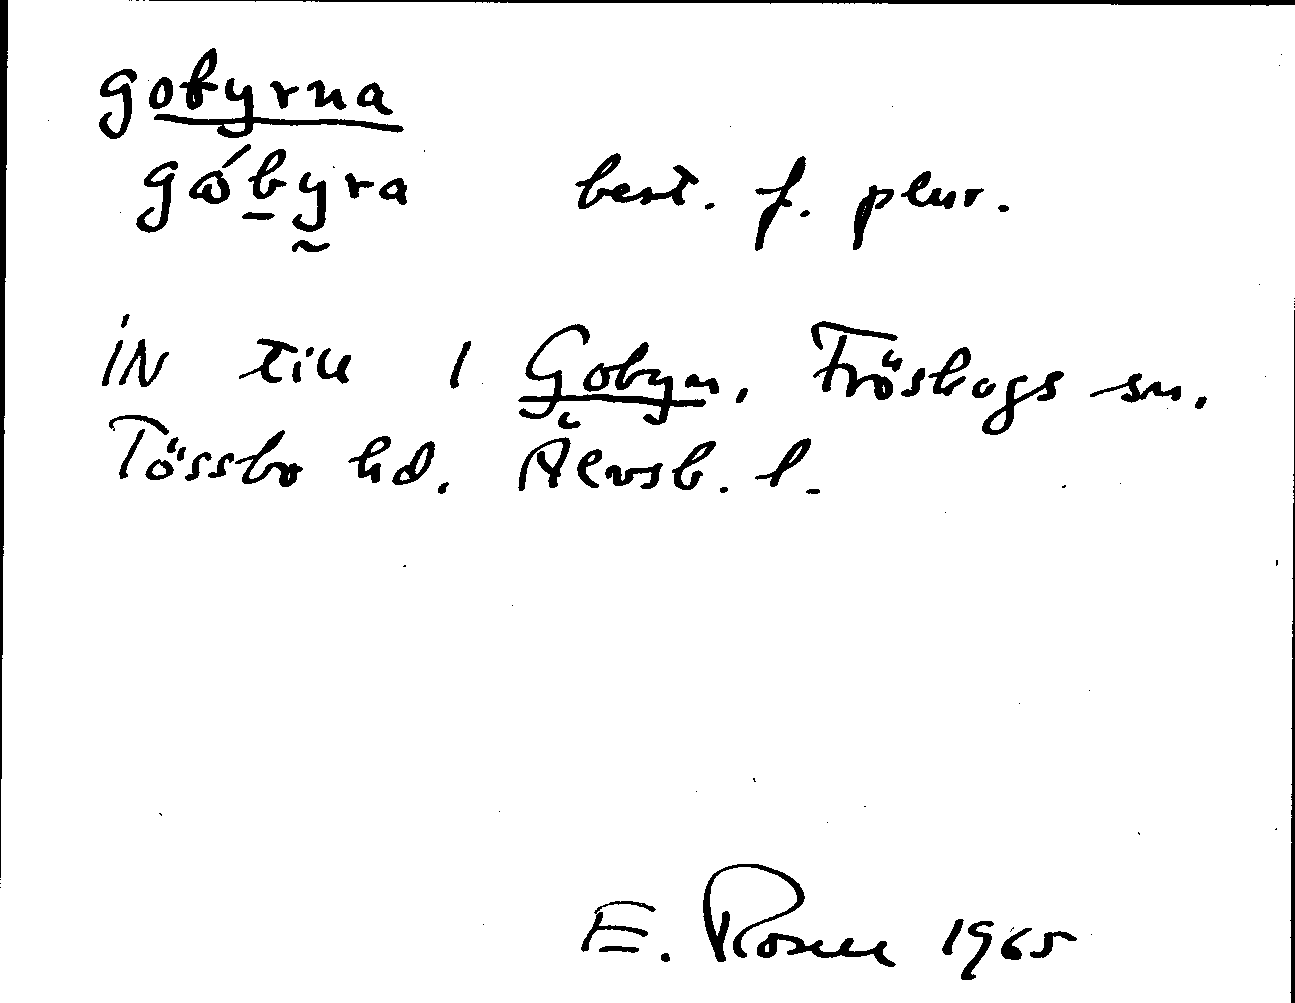 gobyrna
góbyra best. f. plur.
iN till 1 Gobyn, Fröskogs sn.
Tössbo hd. Älvsb. l.
E. Rosell 1965